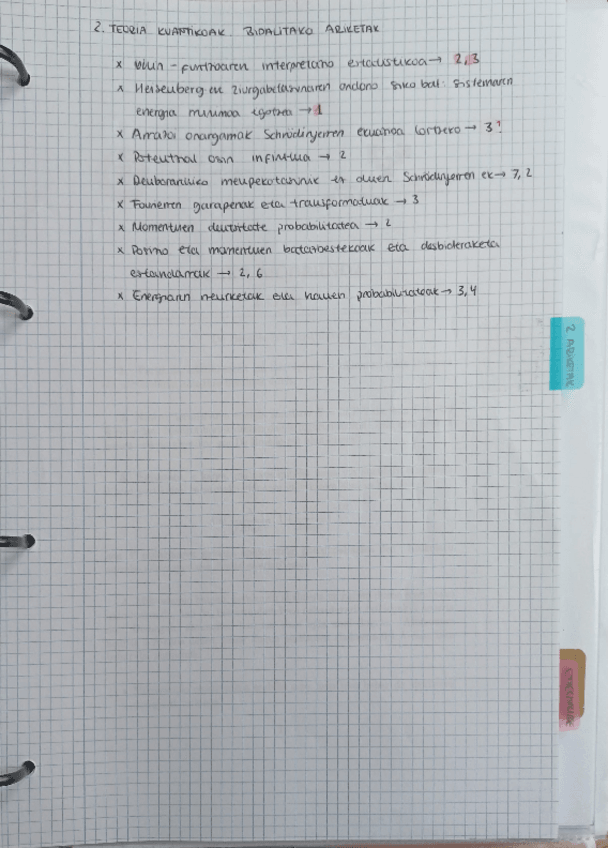 2. TEORIA KUANTIKOAK BIDALITAKO ARIKETAK
x Uhin-funtzioaren interpretazio estadistikoa → 2, 3
x Heisenberg-en ziurgabetasunaren ondorio sinko bat: sistemaren
energia minimoa → 1
x Arrazoi onargarriak Schrödingerren ekuazioa lortzeko → 3!
x Potentzial osin infinitua → 2
x Denborarekiko menpekotasunik ez duen Schrödingerren ek → 7, 2
x Fourierren garapenak eta transformatuak → 3
x Momentuen dentsitate probabilitatea → 2
x Posizio eta momentuen batazbestekoak eta desbideraketa
estandarrak → 2, 6
x Energiaren neurketak eta hauen probabilitateak → 3, 4
2 ARIKETAK